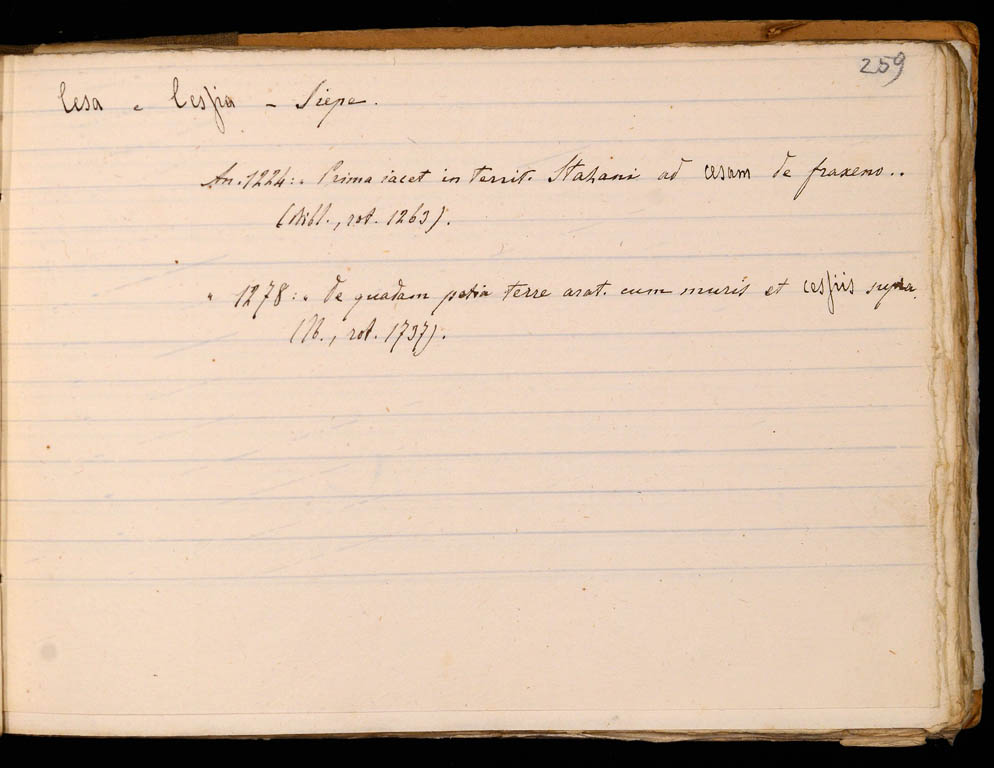 259
Cesa e Cespia - Siepe.
An. 1224: " Prima iacet in territ. Stabani ad cesam de fraxeno..
(Bibl., rot. 1263).
" 1278: " de quadam petia terre arat. cum muris et cespiis supra.
(Ib., rot. 1737).